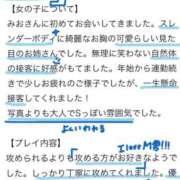 【女の子について】
みおさんに初めてお会いしてきました。スレ
ンダーボディに綺麗なお胸の可愛らしい見た
目のお姉さんでした。無理に笑わない自然体
の接客に好感がもてました。年始から連勤続
きで少しお疲れのご様子でしたが、一生懸命
接客してくれました。
写真よりも大人でSっぽい雰囲気でした。
よくいわれる
【プレイ内容】
I love M男!!
攻められるよりも攻める方がお好きなような
ので、しっかり丁寧に攻めてくれました。